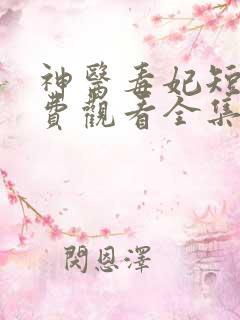 神醫毒妃短
費觀看全集
閔恩澤